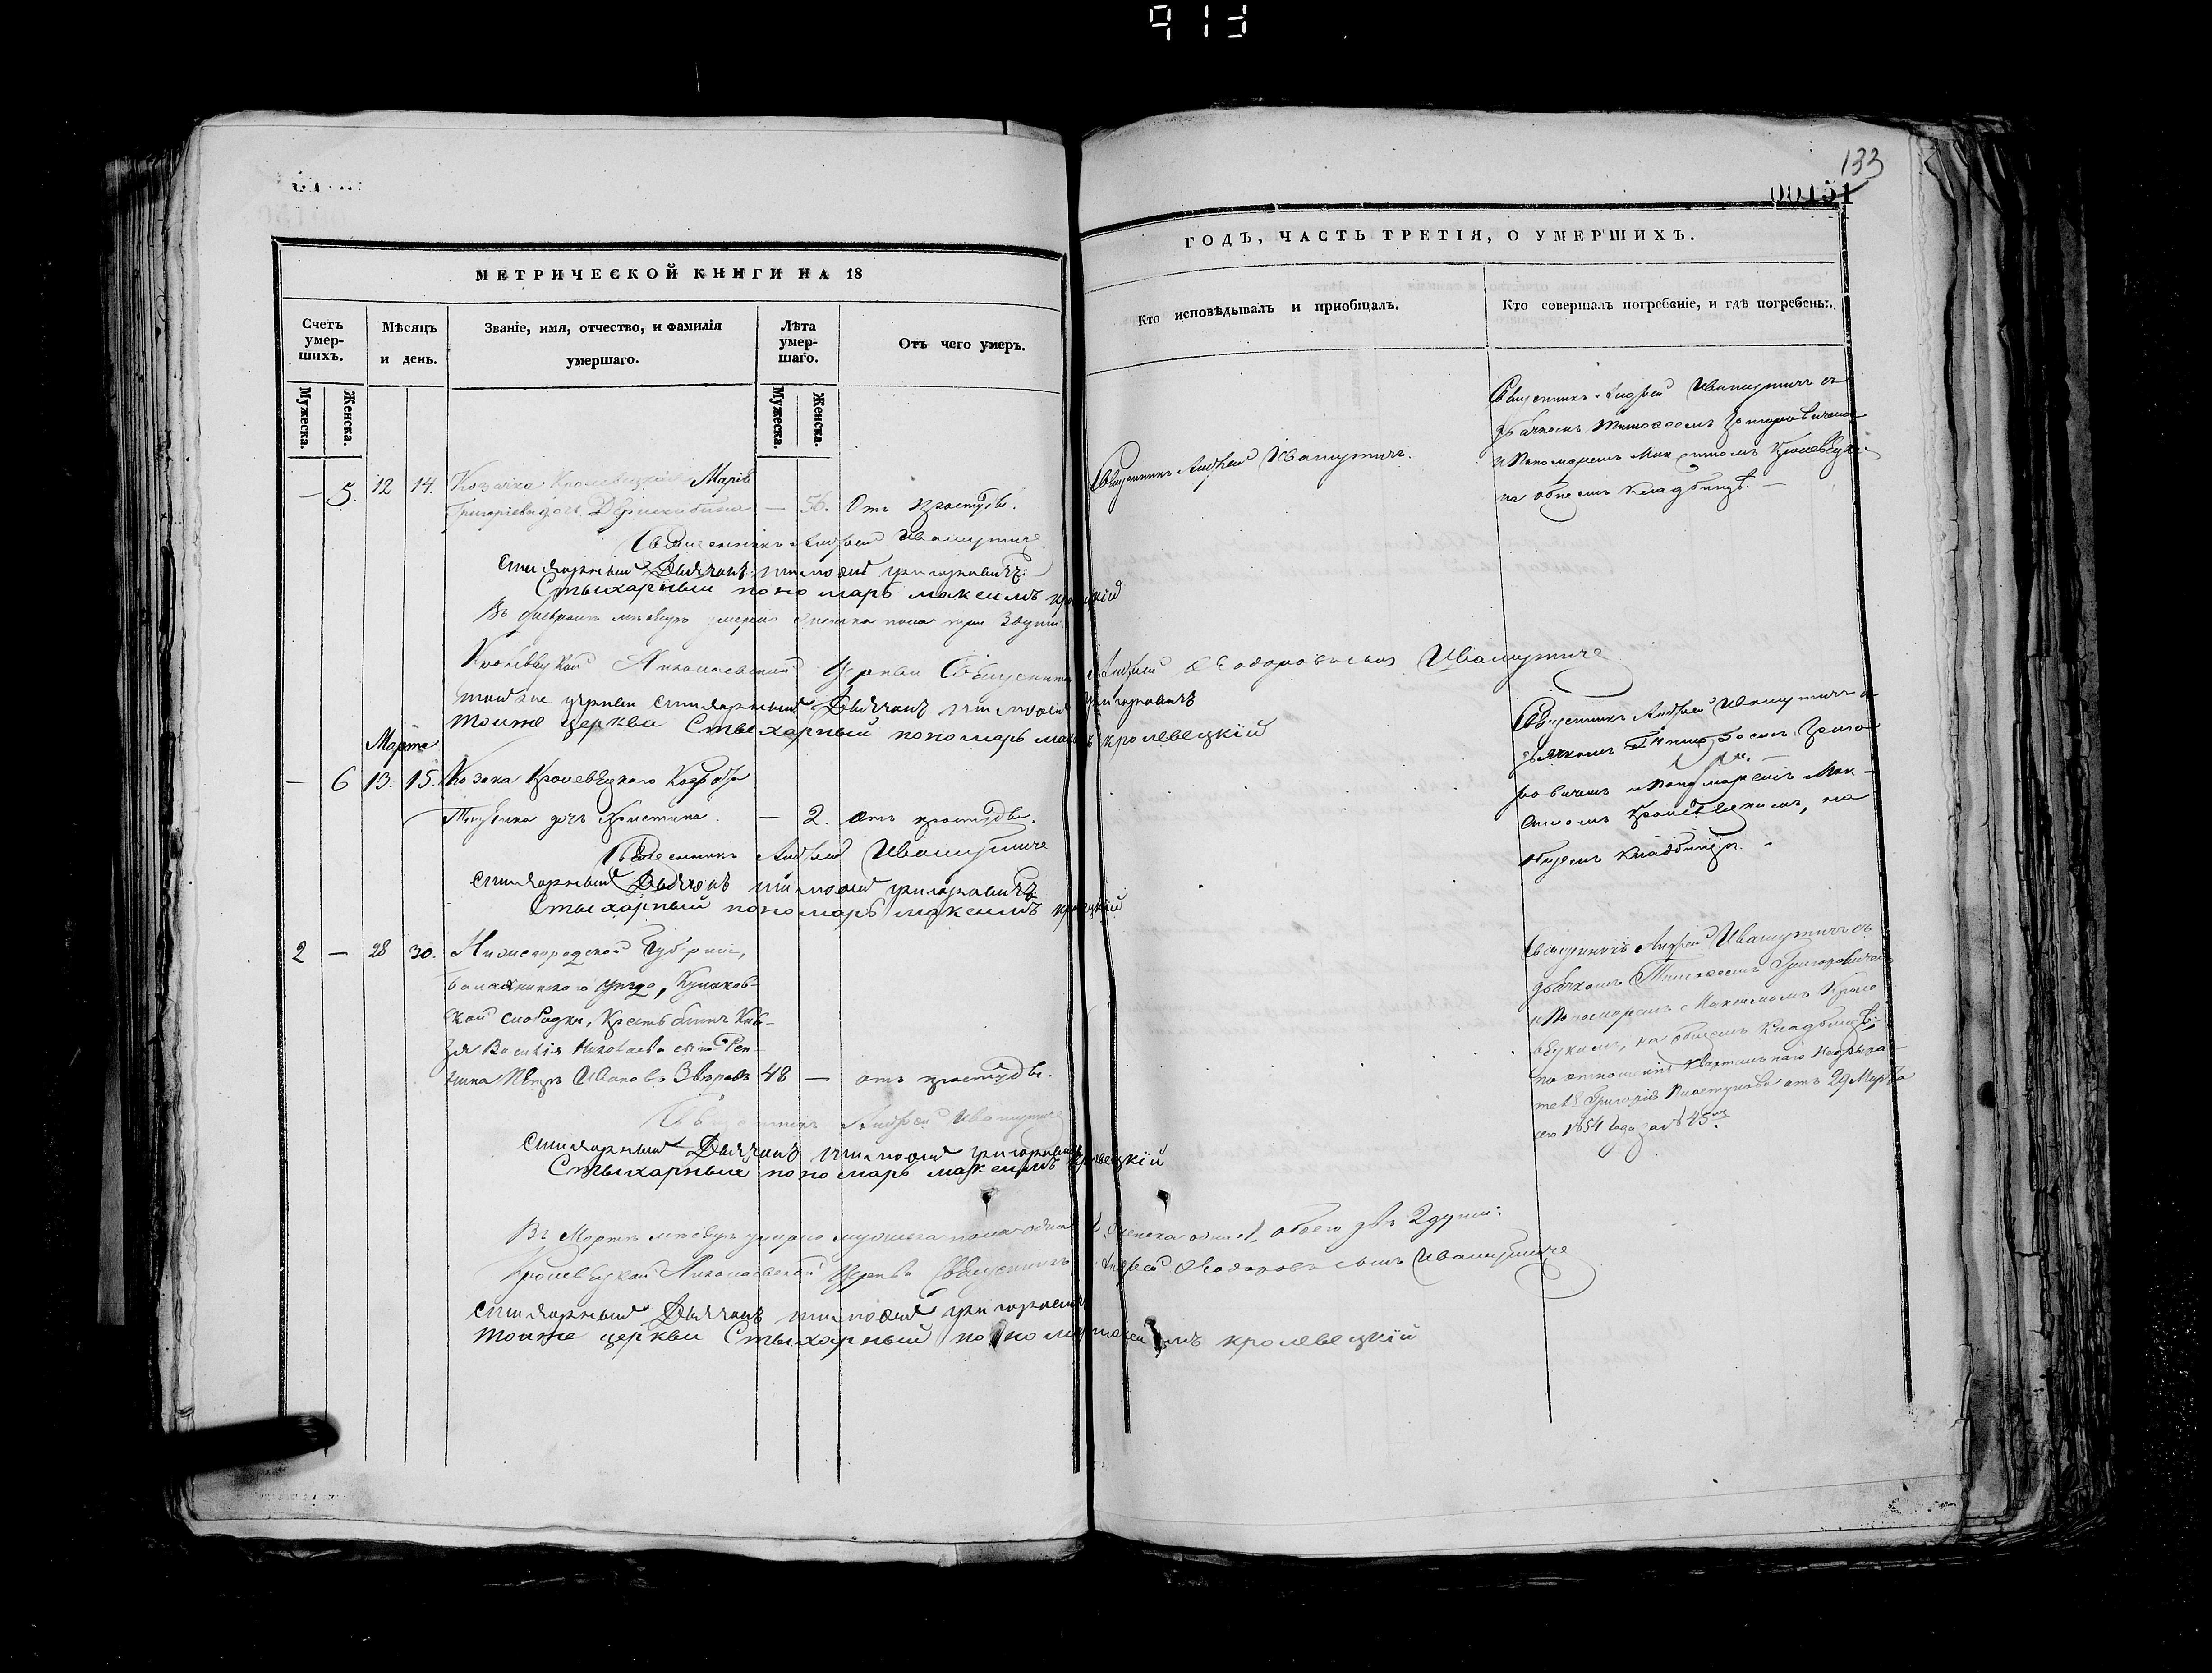 913
133
00151
МЕТРИЧЕСКОЙ КНИГИ НА 18
ГОДЪ, ЧАСТЬ ТРЕТІЯ, О УМЕРШИХЪ.
Счетъ умер-
шихъ.
Мужеска.
Женска.
Мѣсяцъ
и день.
Званіе, имя, отчество, и фамилія
умершаго.
Лѣта
умер-
шаго.
Мужеска.
Женска.
Отъ чего умеръ.
Кто исповѣдывалъ и пріобщалъ.
Кто совершалъ погребеніе, и гдѣ погребены.
— 5. 12 14. Козачка Кролевецкая Марія
Григоріева дочь — 56. Отъ простуды.
Священникъ Андрей Ивашутичъ.
Священникъ Андрей Ивашутичъ съ
дьячкомъ Тимофеемъ Григоровичемъ
и Пономаремъ Максимомъ Кролевецкимъ
на общемъ кладбищѣ. —
Священникъ Андрей Ивашутичъ
Стихарный Дьячокъ Тимофей Григоровичъ
Стыхарный пономарь Максимъ Кролевецкій
Въ февралѣ мѣсяцѣ умерло женска пола три 3 души
Кролевецкой Николаевской Церкви Священникъ Андрей Феодоровъ сынъ Ивашутичъ
тойже церкви Стихарный Дьячокъ Тимофей Григоровичъ
Тоиже церкви Стыхарный пономарь Максимъ Кролевецкій
Марта
— 6 13. 15. Козака Кролевецкаго
дочь Христина. — 2. отъ простуды.
Священникъ Андрей Ивашутичъ и
дьячкомъ Тимофеемъ Григо-
ровичемъ и Пономаремъ Мак-
симомъ Кролевецкимъ, на
общемъ кладбищѣ.
Священникъ Андрей Ивашутичъ
Стихарный Дьячокъ Тимофей Григоровичъ
Стыхарный пономарь Максимъ Кролевецкій
2 — 28 30. Нижегородской Губерніи,
Балахнинскаго уѣзда,
кой слободки, Крестьянинъ Кня-
зя Василія Николаева сына Реп-
нина Петръ Ивановъ Звѣревъ 48 — отъ простуды.
Священникъ Андрей Ивашутичъ съ
дьячкомъ Тимофеемъ Григоровичемъ
и Пономаремъ Максимомъ Кроле-
вецкимъ, на общемъ кладбищѣ;
по отношенію Квартальнаго Надзира-
теля Григорія отъ 29 Марта
сего 1854 года за № 45
Священникъ Андрей Ивашутичъ
Стихарный Дьячокъ Тимофей Григоровичъ
Стыхарный пономарь Максимъ Кролевецкій
Въ Мартѣ мѣсяцѣ умерло мужеска пола одинъ 1, женска одна 1, обоего двѣ 2 души.
Кролевецкой Николаевской Церкви Священникъ Андрей Феодоровъ сынъ Ивашутичъ
Стихарный Дьячокъ Тимофей Григоровичъ
Тоиже церкви Стыхарный пономарь Максимъ Кролевецкій